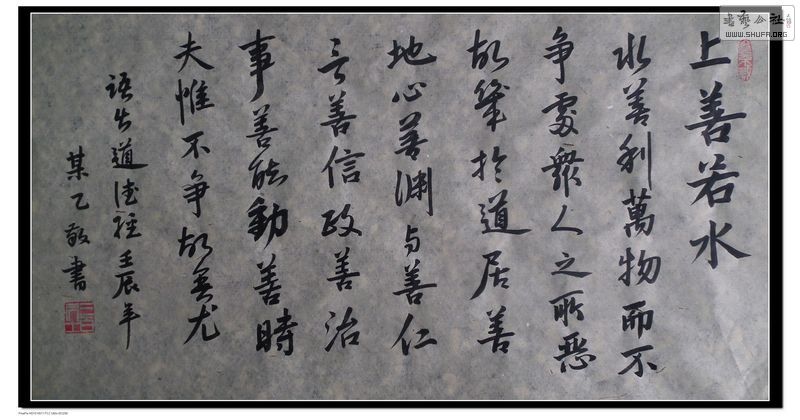 上善若水
水善利萬物而不
争處衆人之所惡
故幾於道居善
地心善渊与善仁
言善信政善治
事善能動善時
夫惟不争故無尤
語出道德經壬辰年
某乙敬書
書藝公社
WWW.SHUFA.ORG